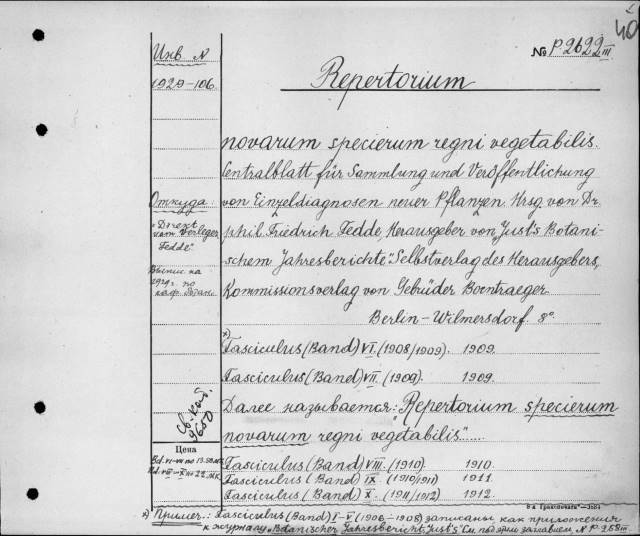 40
Инв. N
1929-106.
№ P2622 III
Repertorium
novarum specierum regni vegetabilis.
Centralblatt für Sammlung und Veröffentlichung
von Einzeldiagnosen neuer Pflanzen. Hrsg. von Dr.
phil. Friedrich Fedde, Herausgeber von „Just's Botani-
schem Jahresberichte". Selbstverlag des Herausgebers,
Kommissionsverlag von Gebrüder Borntraeger
Berlin-Wilmersdorf. 8°
Откуда:
"Direkt
vom Verleger
Fedde"
Выпис. на
1929 г. по
каф. Ботан.
*)
Fasciculus (Band) VI. (1908/1909). 1909.
Fasciculus (Band) VII. (1909). 1909.
Далее называется: "Repertorium specierum
novarum regni vegetabilis".....
Fasciculus (Band) VIII. (1910). 1910.
Fasciculus (Band) IX. (1910/1911) 1911.
Fasciculus (Band) X. (1911/1912) 1912.
9650
Цена
Bd. VI-VII по 13.50 MK
Bd. VIII-X по 22 MK
*) Примеч.: Fasciculus (Band) I-V (1906-1908) записаны как приложения
к журналу „Botanischer Jahresbericht: Just's" См. под этим заглавием, N P. 258 III.